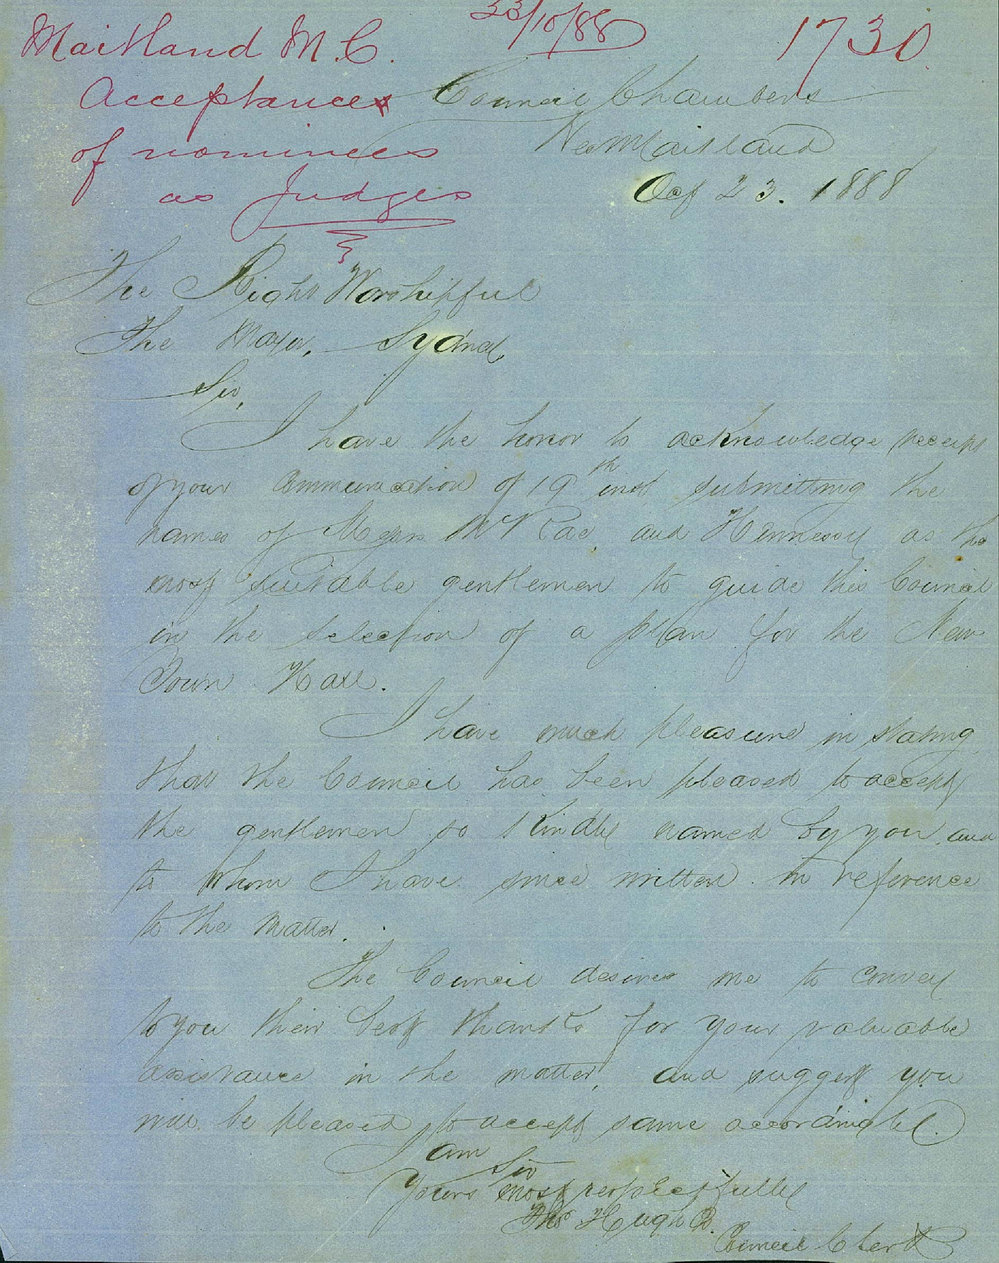 Maitland M.C.
Acceptance
of nominees
as Judges
23/10/88
1730
Council Chambers
Maitland
Oct 23. 1888
The Right Worshipful
The Mayor, Sydney
Sir,
I have the honor to acknowledge receipt
of your Communication of 19th inst submitting the
names of Messrs McRae and Hennessy as the
most suitable gentlemen to guide this Council
in the selection of a plan for the New
Town Hall.
I have much pleasure in stating
that the Council has been pleased to accept
the gentlemen so kindly named by you and
to whom I have since written in reference
to the matter.
The Council desires me to convey
to you their best thanks for your valuable
assistance in the matter, and suggest you
will be pleased to accept same accordingly.
I am
Sir
Yours most respectfully
Thos Hughes
Council Clerk